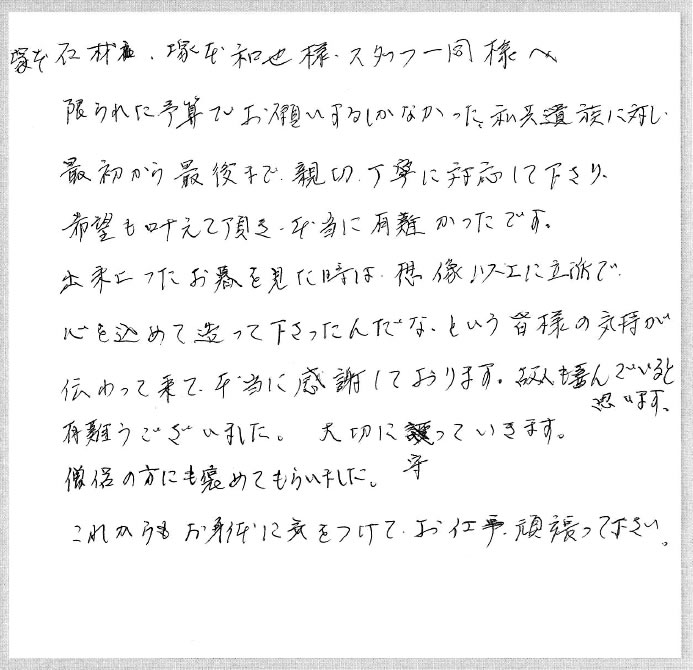 塚本石材店、塚本和也様、スタッフ一同様へ
限られた予算でお願いするしかなかった、私共遺族に対し
最初から最後まで、親切、丁寧に対応して下さり、
希望も叶えて頂き、本当に有難かったです。
出来上ったお墓を見た時は、想像以上に立派で、
心を込めて造って下さったんだな、という皆様の気持が
伝わって来て、本当に感謝しております。故人も喜んでいると
思います。
有難うございました。 大切に守っていきます。
僧侶の方にも褒めてもらいました。
これからもお身体に気をつけて、お仕事、頑張って下さい。